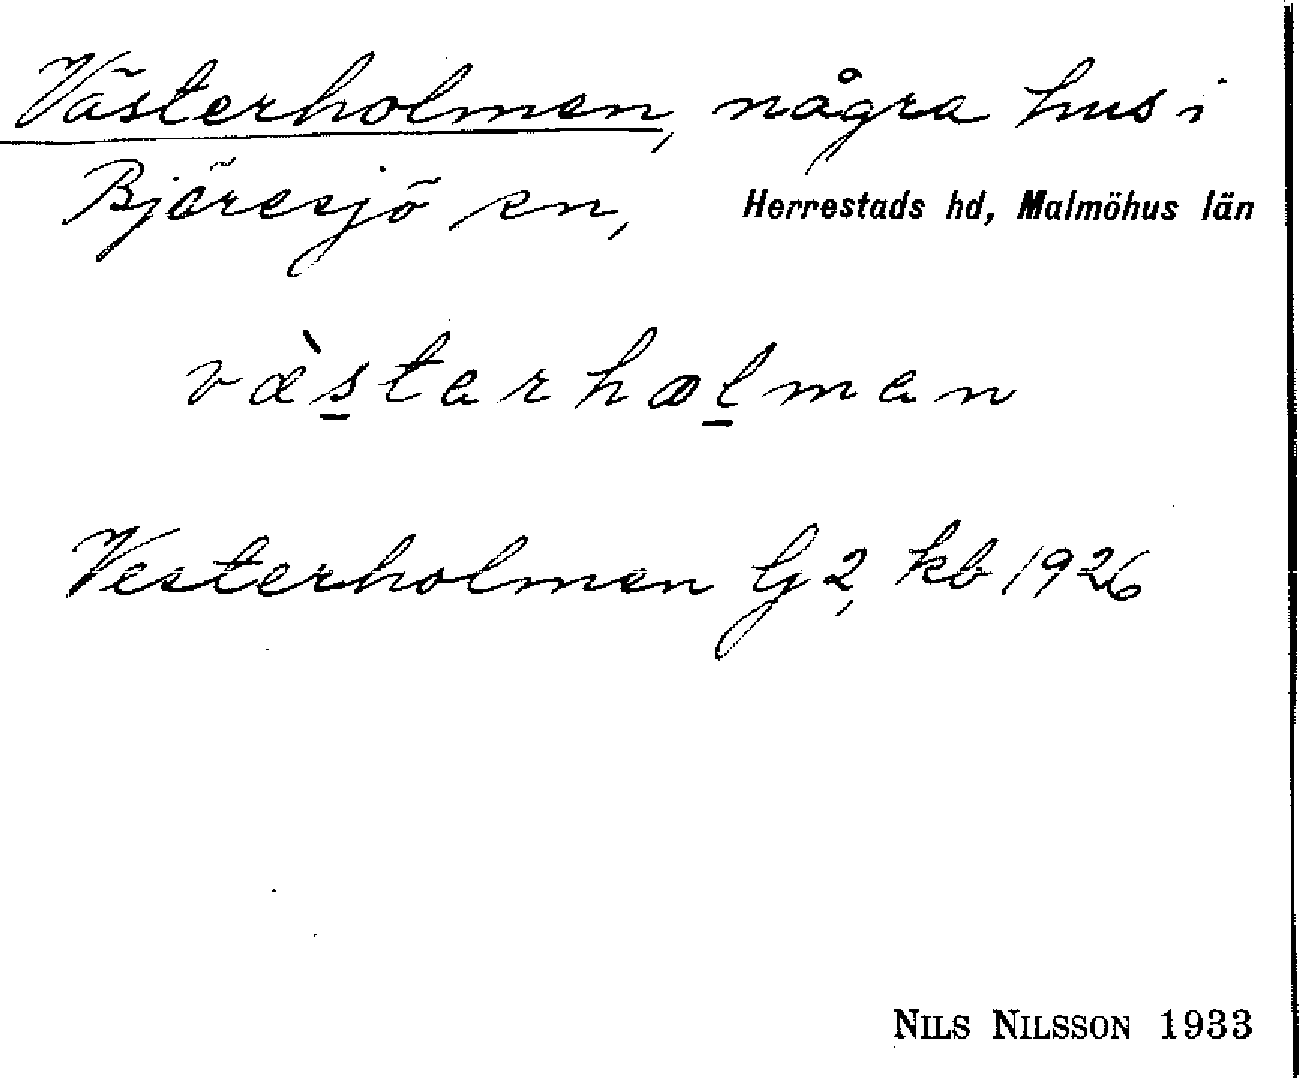 Västerholmen, några hus i
Bjäresjö sn, Herrestads hd, Malmöhus län
væ̀s̲tarhol̲man
Vesterholmen G 2, kb 1926
NILS NILSSON 1933